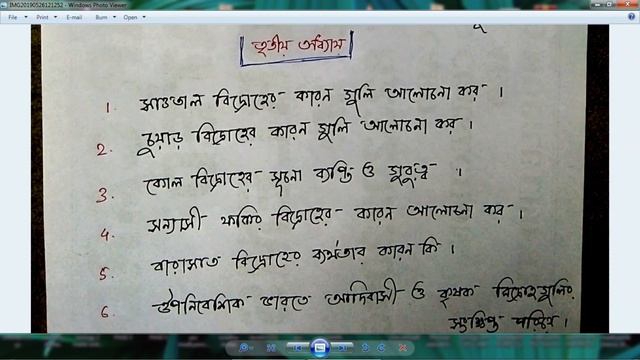 IMG20190526121252 - Windows Photo Viewer
File Print E-mail Burn Open
তৃতীয় অধ্যায়
1. সাঁওতাল বিদ্রোহের কারন গুলি আলোচনা কর ।
2. চুয়াড় বিদ্রোহের কারন গুলি আলোচনা কর ।
3. কোল বিদ্রোহের সূচনা ব্যাপ্তি ও গুরুত্ব ।
4. সন্যাসী ফকির বিদ্রোহের কারন আলোচনা কর ।
5. বারাসাত বিদ্রোহের ব্যর্থতার কারন কি ।
6. ঔপনিবেশিক ভারতে আদিবাসী ও কৃষক বিদ্রোহগুলির
সংক্ষিপ্ত পরিচয় ।